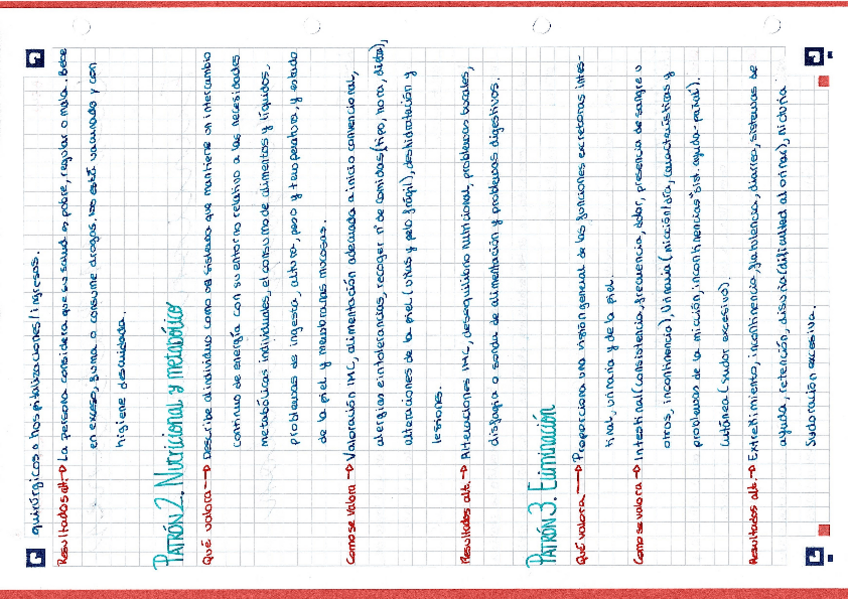 quirúrgicos o hospitalizaciones/ingresos.
Resultados alt.→ La persona considera que su salud es pobre, regular o mala. Bebe
en exceso, fuma o consume drogas. No está vacunado y con
higiene descuidada.
PATRÓN 2. Nutricional y metabólico
Qué valora → Describe al individuo como un sistema que mantiene un intercambio
continuo de energía con su entorno relativo a las necesidades
metabólicas individuales, el consumo de alimentos y líquidos,
problemas de ingesta, altura, peso y temperatura, y estado
de la piel y membranas mucosas.
Como se valora → Valoración IMC, alimentación adecuada a inicio convencional,
alergias e intolerancias, recoger nº de comidas (tipo, hora, dieta),
alteraciones de la piel (uñas y pelo frágil), deshidratación y
lesiones.
Resultados alt.→ Alteraciones IMC, desequilibrio nutricional, problemas bucales,
disfagia o sonda de alimentación y problemas digestivos.
PATRÓN 3. Eliminación
Qué valora → Proporciona una visión general de las funciones excretoras intes-
tinal, urinaria y de la piel.
Como se valora → Intestinal (consistencia, frecuencia, dolor, presencia de sangre u
otros, incontinencia), Urinaria (micción/dra, características y
problemas de la micción, incontinencias "sist. ayuda-pañal").
Cutánea (sudor excesivo).
Resultados alt.→ Estreñimiento, incontinencia, flatulencia, diarrea, sistemas de
ayuda, retención, disuria (dificultad al orinar), nicturia
Sudoración excesiva.